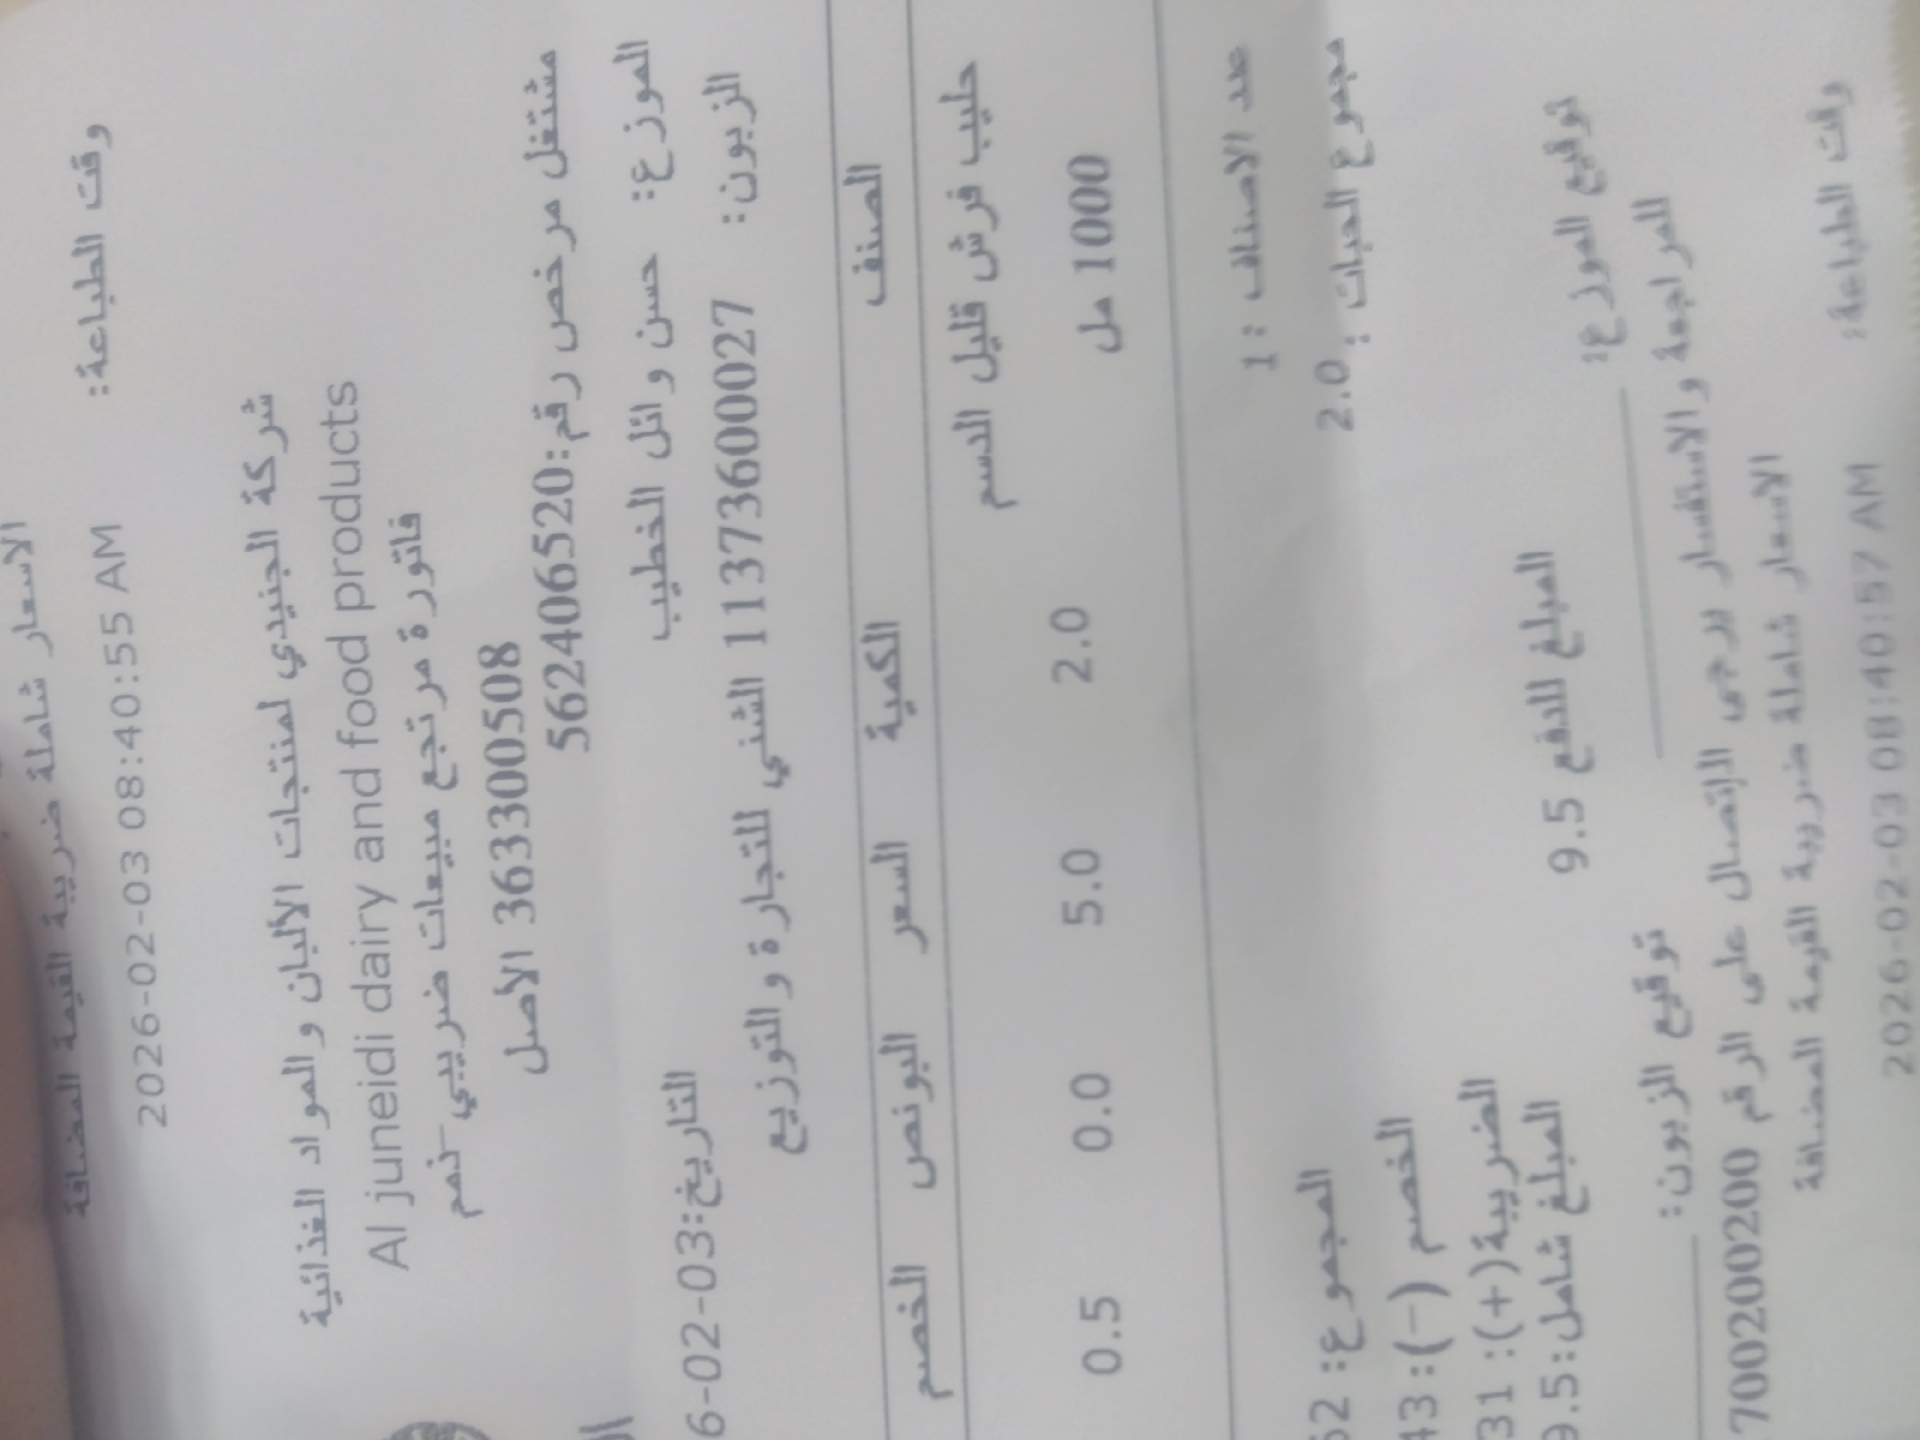 الاسعار شاملة ضريبة القيمة المضافة
وقت الطباعة: 2026-02-03 08:40:55 AM
شركة الجنيدي لمنتجات الألبان و المواد الغذائية
Al juneidi dairy and food products
فاتورة مرتجع مبيعات ضريبي-ذمم
363300508 الأصل
مشتغل مرخص رقم:562406520
الموزع: حسن وائل الخطيب
التاريخ:6-02-03
الزبون: 1137360027 الشني للتجارة و التوزيع
الصنف الكمية السعر البونص الخصم
حليب فرش قليل الدسم
1000 مل 2.0 5.0 0.0 0.5
عدد الاصناف : 1
مجموع الحبات : 2.0
المجموع: 62
الخصم (-): 43
الضريبة(+): 31
المبلغ شامل:9.5
المبلغ للدفع 9.5
توقيع الموزع:
توقيع الزبون:
للمراجعة والاستفسار يرجى الإتصال على الرقم 700200200
الاسعار شاملة ضريبة القيمة المضافة
وقت الطباعة: 2026-02-03 08:40:57 AM